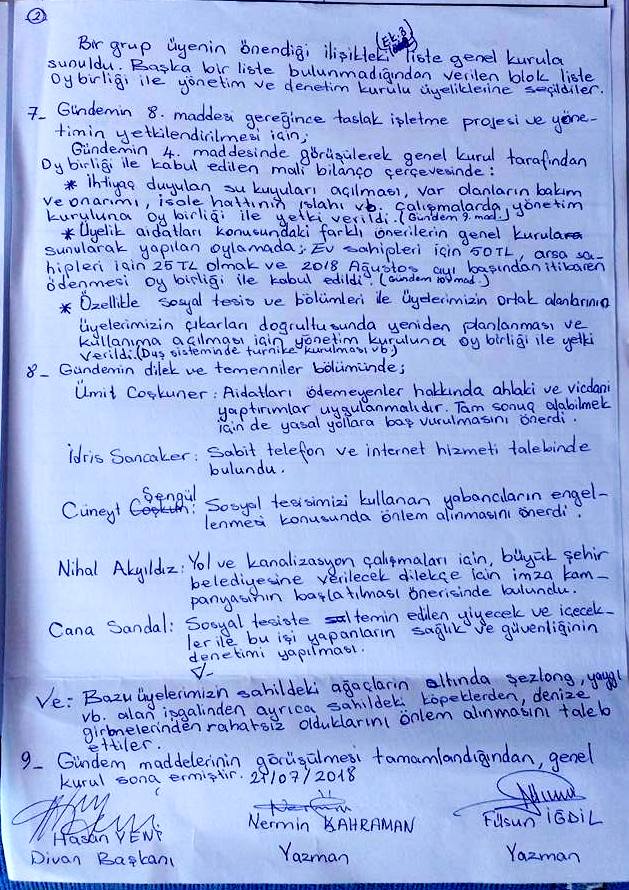 2
Bir grup üyenin önendiği ilişikteki (Ek.3 liste) liste genel kurula
sunuldu. Başka bir liste bulunmadığından verilen blok liste
Oybirliği ile yönetim ve denetim kurulu üyeliklerine seçildiler.
7- Gündemin 8. maddesi gereğince taslak işletme projesi ve yöne-
timin yetkilendirilmesi için;
Gündemin 4. maddesinde görüşülerek genel kurul tarafından
Oy birliği ile kabul edilen mali bilanço çerçevesinde:
* İhtiyaç duyulan su kuyuları açılması, var olanların bakım
ve onarımı, isale hattının ıslahı vb. çalışmalarda yönetim
kuruluna oy birliği ile yetki verildi. (Gündem 9. mad.)
* Üyelik aidatları konusundaki farklı önerilerin genel kurula
sunularak yapılan oylamada; Ev sahipleri için 50 TL, arsa sa-
hipleri için 25 TL olmak ve 2018 Ağustos ayı başından itibaren
ödenmesi oy birliği ile kabul edildi. (Gündem 10 mad.)
* Özellikle sosyal tesis ve bölümleri ile üyelerimizin ortak alanlarının
üyelerimizin çıkarları doğrultusunda yeniden planlanması ve
kullanıma açılması için yönetim kuruluna oy birliği ile yetki
verildi. (Duş sisteminde turnike kurulması vb.)
8- Gündemin dilek ve temenniler bölümünde;
Ümit Coşkuner: Aidatları ödemeyenler hakkında ahlaki ve vicdani
yaptırımlar uygulanmalıdır. Tam sonuç alabilmek
için de yasal yollara baş vurulmasını önerdi.
İdris Sancaker: Sabit telefon ve internet hizmeti talebinde
bulundu.
Cüneyt Coşkun Şengül: Sosyal tesisimizi kullanan yabancıların engel-
lenmesi konusunda önlem alınmasını önerdi.
Nihal Akyıldız: Yol ve kanalizasyon çalışmaları için, büyük şehir
belediyesine verilecek dilekçe için imza kam-
panyasının başlatılması önerisinde bulundu.
Cana Sandal: Sosyal tesiste temin edilen yiyecek ve içecek-
ler ile bu işi yapanların sağlık ve güvenliğinin
denetimi yapılması.
Ve: Bazu üyelerimizin sahildeki ağaçların altında şezlong, yaygı
vb. alan işgalinden ayrıca sahildeki köpeklerden, denize
girbnelerinden rahatsız olduklarını önlem alınmasını taleb
ettiler.
9- Gündem maddelerinin görüşülmesi tamamlandığından, genel
kurul sona ermiştir. 21/07/2018
Hasan YENİ Nermin KAHRAMAN Füsun İGDİL
Divan Başkanı Yazman Yazman